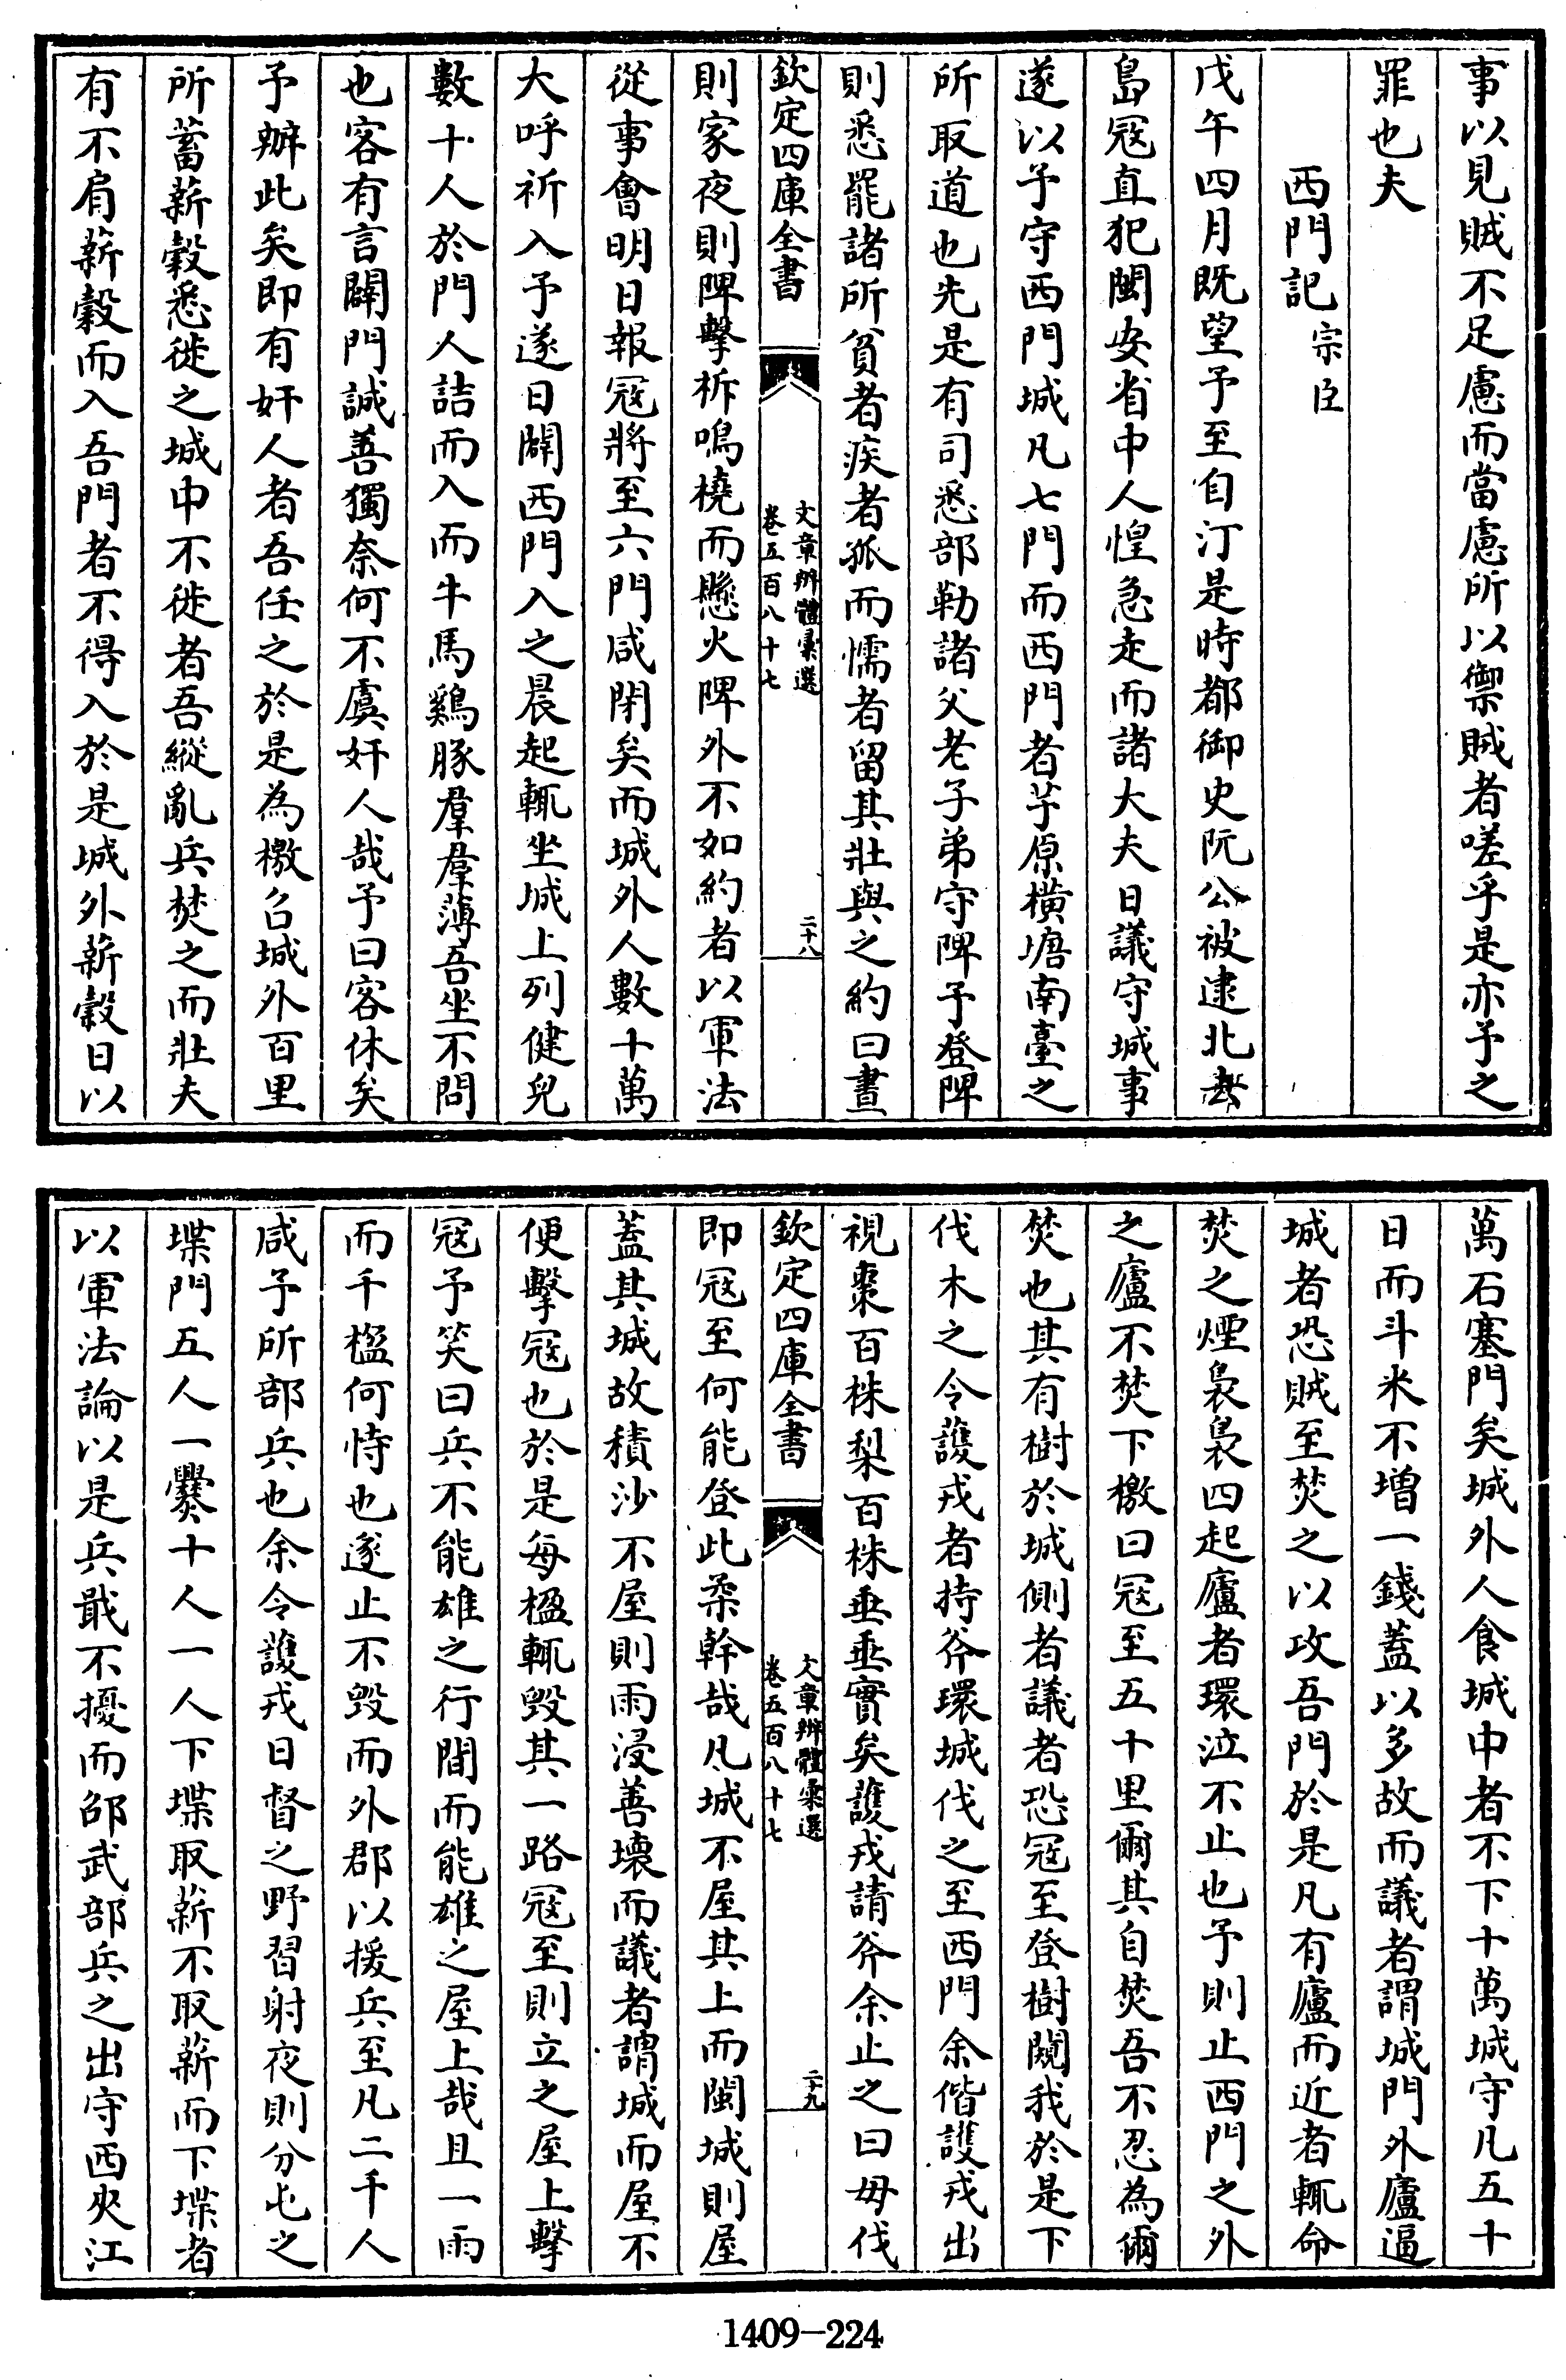 事以見賊不足慮而當慮所以禦賊者嗟乎是亦予之
罪也夫
西門記宗臣
戊午四月既望予至自汀是時都御史阮公被逮北去
島冦直犯閩安省中人惶急走而諸大夫日議守城事
遂以予守西門城凡七門而西門者芋原橫塘南臺之
所取道也先是有司悉部勒諸父老子弟守陴予登陴
則悉罷諸所貧者疾者孤而懦者留其壯與之約曰晝
欽定四庫全書
文章辨體彚選
卷五百八十七
二十八
則家夜則陴擊柝鳴橈而懸火陴外不如約者以軍法
從事會明日報冦將至六門咸閉矣而城外人數十萬
大呼祈入予遂日闢西門入之晨起輒坐城上列健兒
數十人於門人詰而入而牛馬鷄豚羣羣薄吾坐不問
也客有言闢門誠善獨奈何不虞奸人哉予曰客休矣
予辦此矣即有奸人者吾任之於是為檄召城外百里
所蓄薪穀悉徙之城中不徙者吾縱亂兵焚之而壯夫
有不肩薪穀而入吾門者不得入於是城外薪穀日以
萬石塞門矣城外人食城中者不下十萬城守凡五十
日而斗米不增一錢蓋以多故而議者謂城門外廬逼
城者恐賊至焚之以攻吾門於是凡有廬而近者輒命
焚之煙裊裊四起廬者環泣不止也予則止西門之外
之廬不焚下檄曰冦至五十里爾其自焚吾不忍為爾
焚也其有樹於城側者議者恐冦至登樹闚我於是下
伐木之令護戎者持斧環城伐之至西門余偕護戎出
視棗百株梨百株垂垂實矣護戎請斧余止之曰毋伐
欽定四庫全書
文章辨體彚選
卷五百八十七
二十九
即冦至何能登此柔幹哉凡城不屋其上而閩城則屋
蓋其城故積沙不屋則雨浸善壞而議者謂城而屋不
便擊冦也於是每楹輒毀其一路冦至則立之屋上擊
冦予笑曰兵不能雄之行間而能雄之屋上哉且一雨
而千楹何恃也遂止不毀而外郡以援兵至凡二千人
咸予所部兵也余令護戎日督之野習射夜則分屯之
堞門五人一爨十人一人下堞取薪不取薪而下堞者
以軍法論以是兵戢不擾而邵武部兵之出守西夾江
1409—224